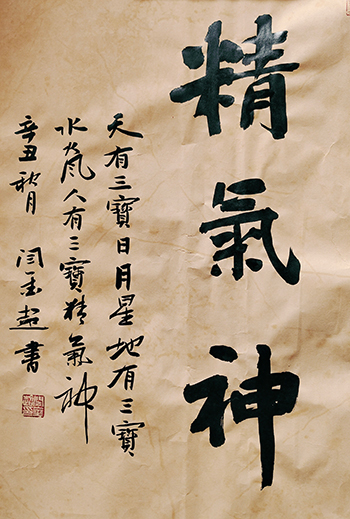 精氣神
天有三寶日月星地有三寶
水火風人有三寶精氣神
辛丑秋月 闫金益書